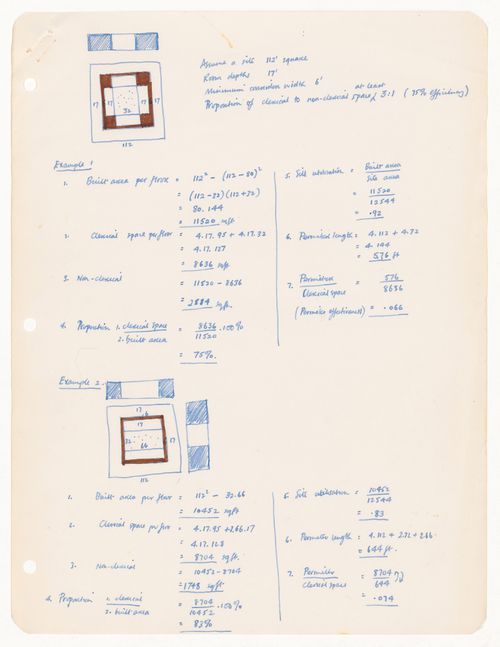 Assume a site 112' square
Room depths 17'
Minimum corridor width 6'
at least
Proportion of clerical to non-clerical space 3:1 (75% efficiency)
17 17 17 17
32
112
Example 1
1. Built area per floor = 112² - (112-80)²
= (112-32)(112+32)
= 80.144
= 11520 sqft
2. Clerical space per floor = 4.17.95 + 4.17.32
= 4.17.127
= 8636 sqft
3. Non-clerical = 11520 - 8636
= 2884 sqft.
4. Proportion 1. clerical space = 8636 .100%
2. built area 11520
= 75%.
5. Site utilisation = Built area
Site area
= 11520
12544
= .92
6. Perimeter length = 4.112 + 4.32
= 4.144
= 576 ft
7. Perimeter = 576
Clerical space 8636
(Perimeter effectiveness) = .066
Example 2.
17
6
17
32 17
66
112
1. Built area per floor = 112² - 32.66
= 10452 sqft
2. Clerical space per floor = 4.17.95 + 2.66.17
= 4.17.128
= 8704 sqft.
3. Non-clerical = 10452 - 8704
= 1748 sqft.
4. Proportion 1. clerical = 8704 .100%
2. built area 10452
= 83%
5. Site utilisation = 10452
12544
= .83
6. Perimeter length = 4.112 + 2.32 + 2.66
= 644 ft.
7. Perimeter = 8704
Clerical space 644
= .074